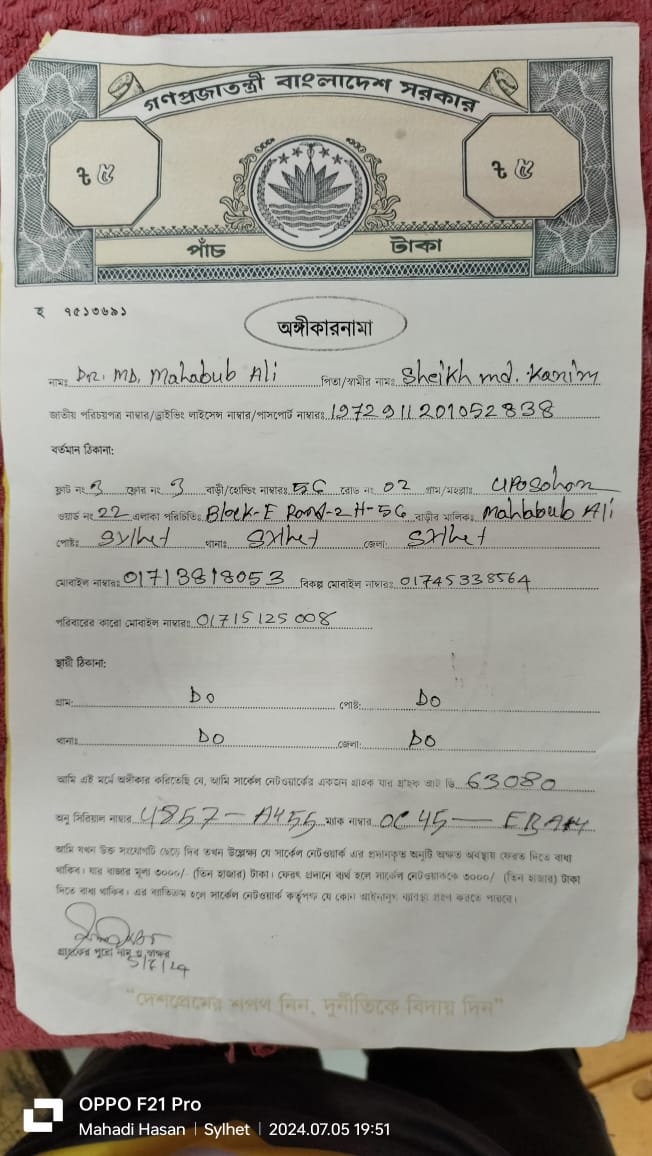 গণপ্রজাতন্ত্রী বাংলাদেশ সরকার
৳ ৫ ৳ ৫
পাঁচ টাকা
হ ৭৫১৩৬৯১
অঙ্গীকারনামা
নামঃ Dr. MD. Mahabub Ali পিতা/স্বামীর নামঃ Sheikh md. Karim
জাতীয় পরিচয়পত্র নাম্বার/ড্রাইভিং লাইসেন্স নাম্বার/পাসপোর্ট নাম্বারঃ 1972911201052838
বর্তমান ঠিকানা:
ফ্লাট নং 3 ফ্লোর নং 3 বাড়ী/হোল্ডিং নাম্বারঃ 56 রোড নং 02 গ্রাম/মহল্লাঃ
ওয়ার্ড নং 22 এলাকা পরিচিতি: Block-E Road-2 H-56 বাড়ীর মালিকঃ Mahbabub Ali
পোষ্টঃ Sylhet থানাঃ Sylhet জেলা: Sylhet
মোবাইল নাম্বারঃ 01713818053 বিকল্প মোবাইল নাম্বারঃ 01745338564
পরিবারের কারো মোবাইল নাম্বারঃ 01715125008
স্থায়ী ঠিকানা:
গ্রাম: Do পোষ্ট: Do
থানাঃ Do জেলা: Do
আমি এই মর্মে অঙ্গীকার করিতেছি যে, আমি সার্কেল নেটওয়ার্কের একজন গ্রাহক যার গ্রাহক আই ডি 63080
অনু সিরিয়াল নাম্বার 4857-A455 ম্যাক নাম্বার 0C45-
আমি যখন উক্ত সংযোগটি ছেড়ে দিব তখন উল্লেক্ষ্য যে সার্কেল নেটওয়ার্ক এর প্রদানকৃত অনুটি অক্ষত অবস্থায় ফেরত দিতে বাধ্য
থাকিব। যার বাজার মূল্য ৩০০০/- (তিন হাজার) টাকা। ফেরৎ প্রদানে ব্যর্থ হলে সার্কেল নেটওয়ার্ককে ৩০০০/ (তিন হাজার) টাকা
দিতে বাধ্য থাকিব। এর ব্যতিক্রম হলে সার্কেল নেটওয়ার্ক কর্তৃপক্ষ যে কোন আইনানুগ ব্যবস্থা গ্রহণ করতে পারবে।
গ্রাহকের পুরো নাম ও স্বাক্ষর
5/7/24
"দেশপ্রেমের শপথ নিন, দুর্নীতিকে বিদায় দিন"
OPPO F21 Pro
Mahadi Hasan | Sylhet | 2024.07.05 19:51